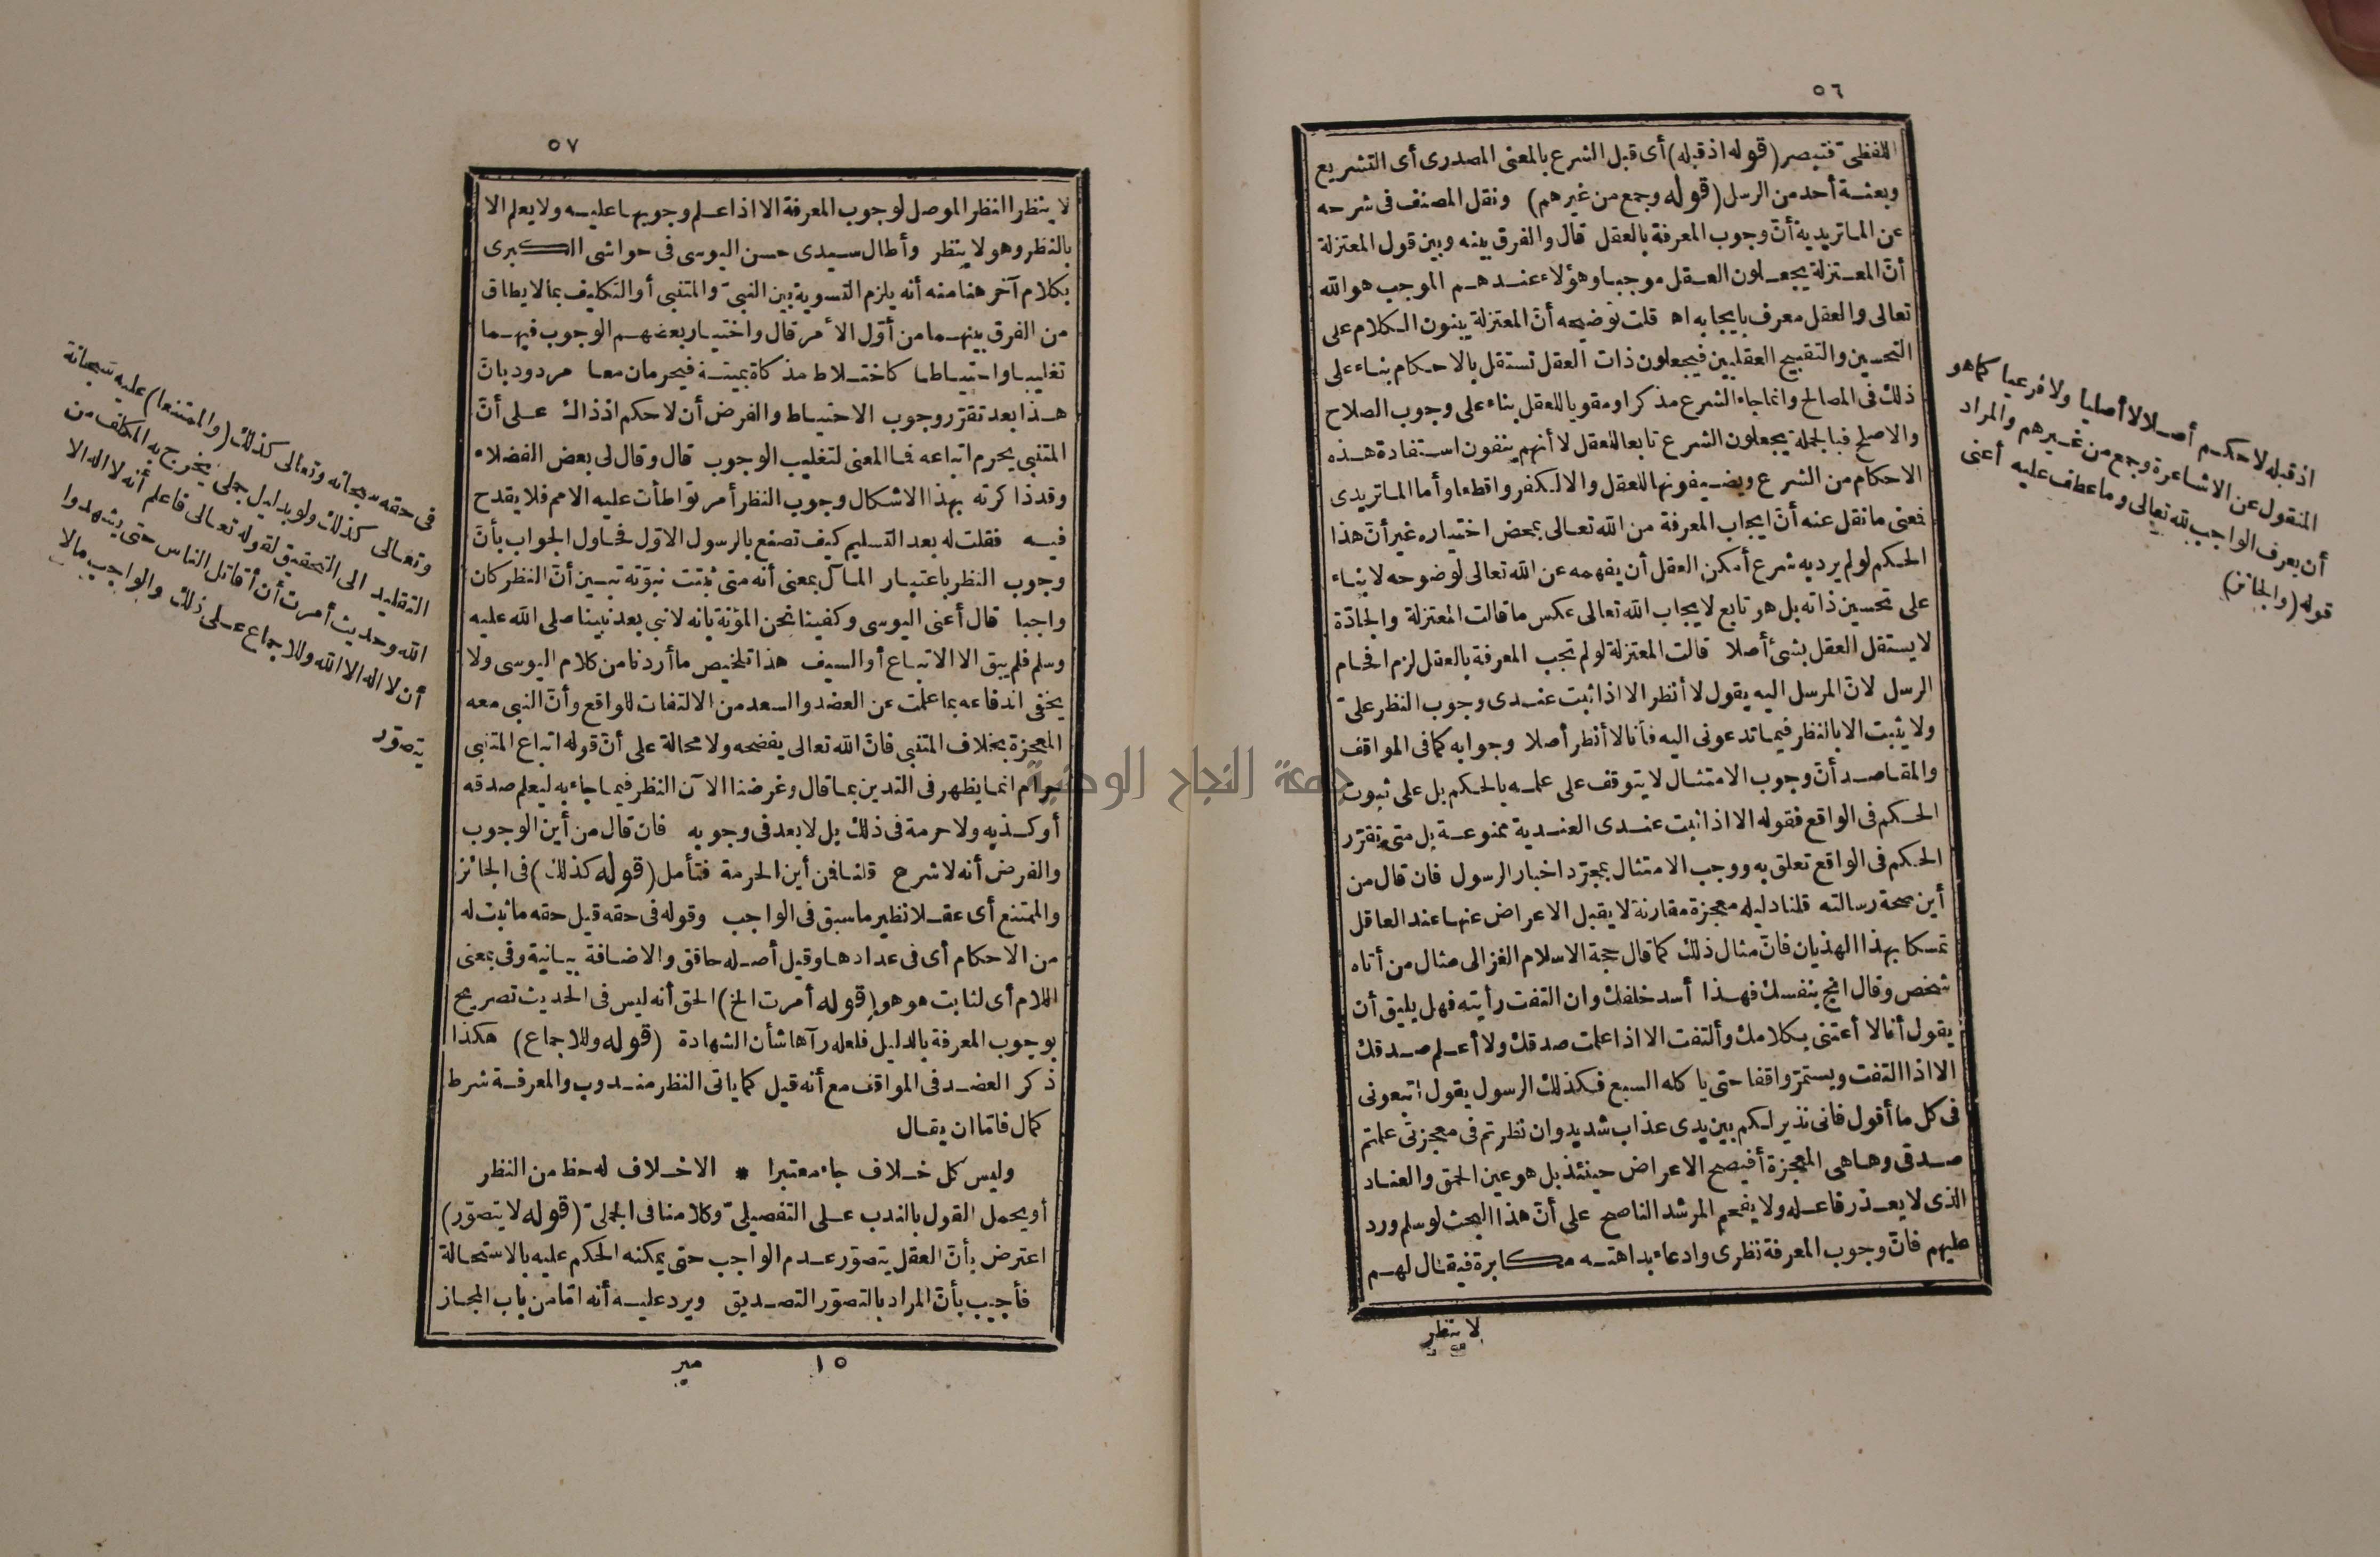 ٥٦
اللفظى فتبصر (قوله اذ قبله) أى قبل الشرع بالمعنى المصدرى أى التشريع
وبعثة أحد من الرسل (قوله وجمع من غيرهم) ونقل المصنف فى شرحه
عن الماتريدية أنّ وجوب المعرفة بالعقل قال والفرق بينه وبين قول المعتزلة
أنّ المعتزلة يجعلون العقل موجبا وهؤلاء عندهم الموجب هو الله
تعالى والعقل معرف بايجابه اه قلت توضيحه أنّ المعتزلة يبنون الكلام على
التحسين والتقبيح العقليين فيجعلون ذات العقل تستقل بالاحكام بناء على
ذلك فى المصالح وانما جاء الشرع مذكرا ومقويا للعقل بناء على وجوب الصلاح
والاصلح فبالجملة يجعلون الشرع تابعا للعقل لا أنهم ينفون استفادة هذه
الاحكام من الشرع ويضيفونها للعقل والا لكفروا قطعا وأما الماتريدى
فمعنى ما نقل عنه أنّ ايجاب المعرفة من الله تعالى بمحض اختياره غير أنّ هذا
الحكم لو لم يرد به شرع أمكن العقل أن يفهمه عن الله تعالى لوضوحه لا بناء
على تحسين ذاته بل هو تابع لايجاب الله تعالى عكس ما قالت المعتزلة والجادّة
لا يستقل العقل بشئ أصلا قالت المعتزلة لو لم تجب المعرفة بالعقل لزم افحام
الرسل لانّ المرسل اليه يقول لا أنظر الا اذا ثبت عندى وجوب النظر علىّ
ولا يثبت الا بالنظر فيما تدعونى اليه فأنا لا أنظر أصلا وجوابه كما فى المواقف
والمقاصد أنّ وجوب الامتثال لا يتوقف على علمه بالحكم بل على ثبوت
الحكم فى الواقع فقوله الا اذا ثبت عندى العندية ممنوعة بل متى تقرّر
الحكم فى الواقع تعلق به ووجب الامتثال بمجرّد اخبار الرسول فان قال من
أين صحة رسالته قلنا دليله معجزة مقارنة لا يقبل الاعراض عنها عند العاقل
تمسكا بهذا الهذيان فانّ مثال ذلك كما قال حجة الاسلام الغزالى مثال من أتاه
شخص وقال انج بنفسك فهذا أسد خلفك وان التفت رأيته فهل يليق أن
يقول أنا لا أعتنى بكلامك وألتفت الا اذا علمت صدقك ولا أعلم صدقك
الا اذا التفت ويستمرّ واقفا حتى يأكله السبع فكذلك الرسول يقول اتبعونى
فى كل ما أقول فانى نذير لكم بين يدى عذاب شديد وان نظرتم فى معجزتى علمتم
صدقى وها هى المعجزة أفيصح الاعراض حينئذ بل هو عين الحمق والعناد
الذى لا يعذر فاعله ولا يفحم المرشد الناصح على أنّ هذا البحث لو سلم ورد
عليهم فانّ وجوب المعرفة نظرى وادعاء بداهته مكابرة فيقال لهم
لا ينظر
اذ قبله لا حكم أصلا لا أصليا ولا فرعيا كما هو
المنقول عن الاشاعرة وجمع من غيرهم والمراد
أن يعرف الواجب لله تعالى وما عطف عليه أعنى
قوله (والجائز)
٥٧
لا ينظر النظر الموصل لوجوب المعرفة الا اذا علم وجوبها عليه ولا يعلم الا
بالنظر وهو لا ينظر وأطال سيدى حسن اليوسى فى حواشى الكبرى
بكلام آخر هنا منه أنه يلزم التسوية بين النبىّ والمتنبى أو التكليف بما لا يطاق
من الفرق بينهما من أوّل الأمر قال واختيار بعضهم الوجوب فيهما
تغليبا واحتياطا كاختلاط مذكاة بميتة فيحرمان معا مردود بانّ
هذا بعد تقرّر وجوب الاحتياط والفرض أن لا حكم اذ ذاك على أنّ
المتنبى يحرم اتباعه فما المعنى لتغليب الوجوب قال وقال لى بعض الفضلاء
وقد ذاكرته بهذا الاشكال وجوب النظر أمر تواطأت عليه الامم فلا يقدح
فيه فقلت له بعد التسليم كيف تصنع بالرسول الاوّل فحاول الجواب بأنّ
وجوب النظر باعتبار المآل بمعنى أنه متى ثبتت نبوّته تبين أنّ النظر كان
واجبا قال أعنى اليوسى وكفينا نحن المؤنة بانه لا نبى بعد نبينا صلى الله عليه
وسلم فلم يبق الا الاتباع أو السيف هذا تلخيص ما أردنا من كلام اليوسى ولا
يخفى اندفاعه بما علمت عن العضد والسعد من الالتفات للواقع وأنّ النبى معه
المعجزة بخلاف المتنبى فانّ الله تعالى يفضحه ولا محالة على أنّ قوله اتباع المتنبى
حرام انما يظهر فى التدين بما قال وغرضنا الآن النظر فيما جاء به ليعلم صدقه
أو كذبه ولا حرمة فى ذلك بل لا بعد فى وجوبه فان قال من أين الوجوب
والفرض أنه لا شرح قلنا فمن أين الحرمة فتأمل (قوله كذلك) فى الجائز
والممتنع أى عقلا نظير ما سبق فى الواجب وقوله فى حقه قيل حقه ما ثبت له
من الاحكام أى فى عدادها وقيل أصله حاقق والاضافة بيانية وفى بمعنى
اللام أى لثابت هو هو (قوله أمرت الخ) الحق أنه ليس فى الحديث تصريح
بوجوب المعرفة بالدليل فلعله رآها شأن الشهادة (قوله وللاجماع) هكذا
ذكر العضد فى المواقف مع أنه قيل كما ياتى النظر مندوب والمعرفة شرط
كمال فامّا ان يقال
وليس كل خلاف جاء معتبرا * الا خلاف له حظ من النظر
أو يحمل القول بالندب على التفصيلىّ وكلامنا فى الجملىّ (قوله لا يتصوّر)
اعترض بأنّ العقل يتصوّر عدم الواجب حتى يمكنه الحكم عليه بالاستحالة
فأجيب بأنّ المراد بالتصوّر التصديق ويرد عليه أنه امّا من باب المجاز
١٥ مير
فى حقه سبحانه وتعالى كذلك (والممتنعا) عليه سبحانه
وتعالى كذلك ولو بدليل جملى يخرج به المكلف من
التقليد الى التحقيق لقوله تعالى فاعلم أنه لا اله الا
الله وحديث أمرت أن أقاتل الناس حتى يشهدوا
أن لا اله الا الله وللاجماع على ذلك والواجب ما لا
يتصوّر
جامعة النجاح الوطنية